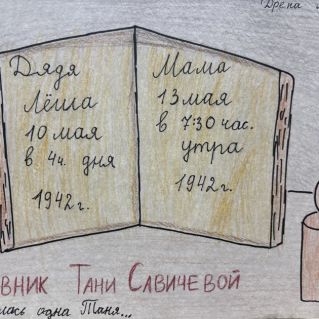 Дядя
Лёша
10 мая
в 4ч. дня
1942г.
Мама
13 мая
в 7:30 час.
утра
1942г.
ВНИК ТАНИ САВИЧЕВОЙ
лась одна Таня...